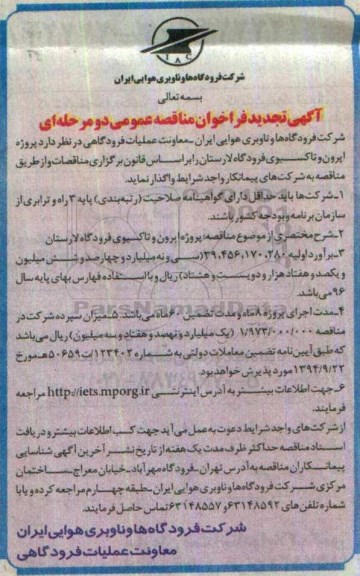 IAC
شرکت فرودگاه‌ها و ناوبری هوایی ایران
بسمه تعالی
آگهی تجدید فراخوان مناقصه عمومی دو مرحله‌ای
شرکت فرودگاه‌ها و ناوبری هوایی ایران - معاونت عملیات فرودگاهی در نظر دارد پروژه
اپرون و تاکسیوی فرودگاه لارستان را بر اساس قانون برگزاری مناقصات و از طریق
مناقصه به شرکت‌های پیمانکار واجد شرایط واگذار نماید.
۱- شرکت‌ها باید حداقل دارای گواهینامه صلاحیت (رتبه‌بندی) پایه ۳ راه و ترابری از
سازمان برنامه و بودجه کشور باشند.
۲- شرح مختصری از موضوع مناقصه: پروژه اپرون و تاکسیوی فرودگاه لارستان
۳- برآورد اولیه ۳۹.۴۵۶.۱۷۰.۲۸۰ (سی و نه میلیارد و چهارصد و شش میلیون
و یکصد و هفتاد هزار و دویست و هشتاد) ریال و با استفاده فهارس بهای پایه سال
۹۶ می‌باشد.
۴- مدت اجرای پروژه ۸ ماه و مدت تضمین ۶۰ ماه می‌باشد. ۵- میزان سپرده شرکت در
مناقصه ۱/۹۷۳/۰۰۰/۰۰۰ (یک میلیارد و نهصد و هفتاد و سه میلیون) ریال می‌باشد
که طبق آیین‌نامه تضمین معاملات دولتی به شماره ۱۲۳۴۰۲/ت۵۰۶۵۹هـ مورخ
۱۳۹۴/۹/۲۲ مورد پذیرش خواهد بود.
۶- جهت اطلاعات بیشتر به آدرس اینترنتی http://iets.mporg.ir مراجعه
فرمایند.
از شرکت‌های واجد شرایط دعوت به عمل می‌آید جهت کسب اطلاعات بیشتر و دریافت
اسناد مناقصه حداکثر ظرف مدت یک هفته از تاریخ نشر آخرین آگهی شناسایی
پیمانکاران مناقصه به آدرس تهران - فرودگاه مهرآباد - خیابان معراج - ساختمان
مرکزی شرکت فرودگاه‌ها و ناوبری هوایی ایران - طبقه چهارم مراجعه کرده و یا با
شماره تلفن‌های ۶۳۱۴۸۵۹۲ و ۶۳۱۴۸۵۵۷ تماس حاصل فرمایند.
شرکت فرودگاه‌ها و ناوبری هوایی ایران
معاونت عملیات فرودگاهی